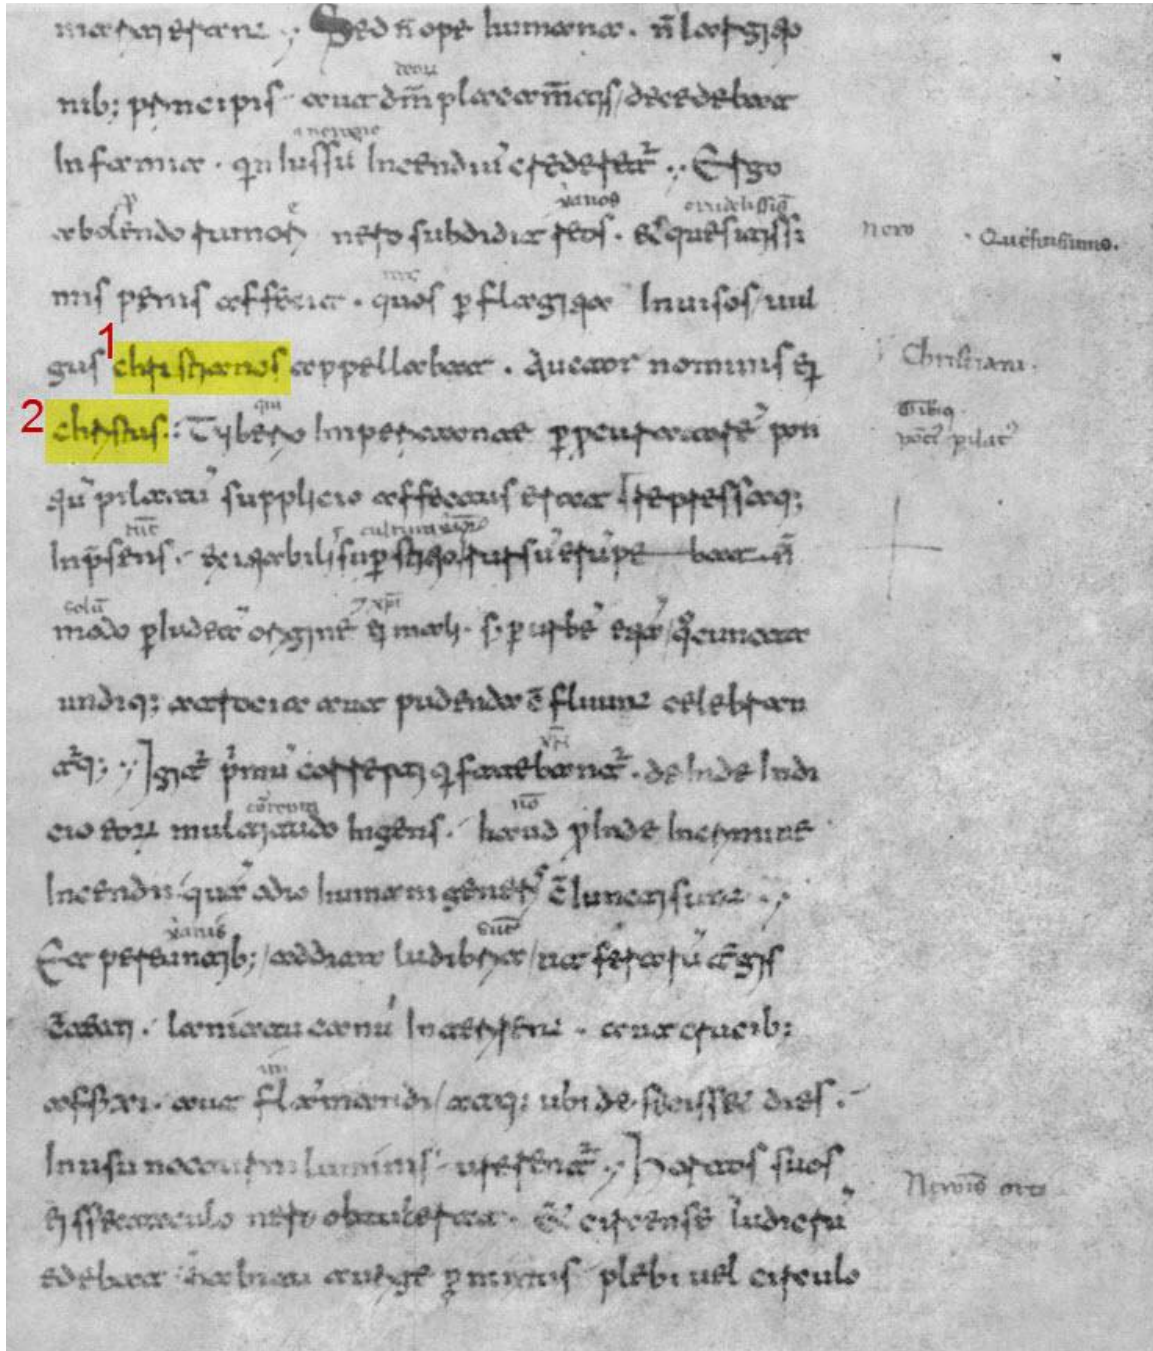 mariti erant. Sed n̄ ope humana. n̄ largitio
nib; principis aut dm̄ placam̄tis decedebat
Infamia. qn Iussū Incendiū crederet. Ergo
abolendo rumori nero subdidit reos. & quesitissi
mis penis affecit. quos p flagitia Invisos vul
1 gus christianos appellabat. Auctor nominis ei
2 christus. Tyberio Imperitante p pcuratorē pon
tiū pilatū supplicio affectus erat repressaq;
In p̄sens. exitiabilis supstitio rursū erūpebat n̄
modo p Iudeā originē ei mali. s. p urbē etiā quo cuncta
undiq; atrocia aut pudenda cōfluunt celebran
tq;. Igit primū correpti q fatebant. deinde Indi
cio eorū multitudo Ingens. haud pinde Incrimine
Incendii quā odio humani generis cōiuncti sunt.
Et pereuntib; addita ludibria ut ferarū tergis
cōtecti. laniatu canū Interirent. aut crucib;
affixi. aut flāmandi atq; ubi defecisset dies.
In usū nocturni luminis urerent. Hortos suos
ei spectaculo nero obtulerat. & circense ludicrū
edebat habitu aurige pmixtus plebi vel circulo
nero
Quesitissimis.
Christiani.
Tibi9
ponti9 pilat9
Neronis orti